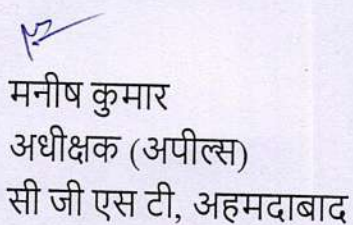 मनीष कुमार
अधीक्षक (अपील्स)
सी जी एस टी, अहमदाबाद